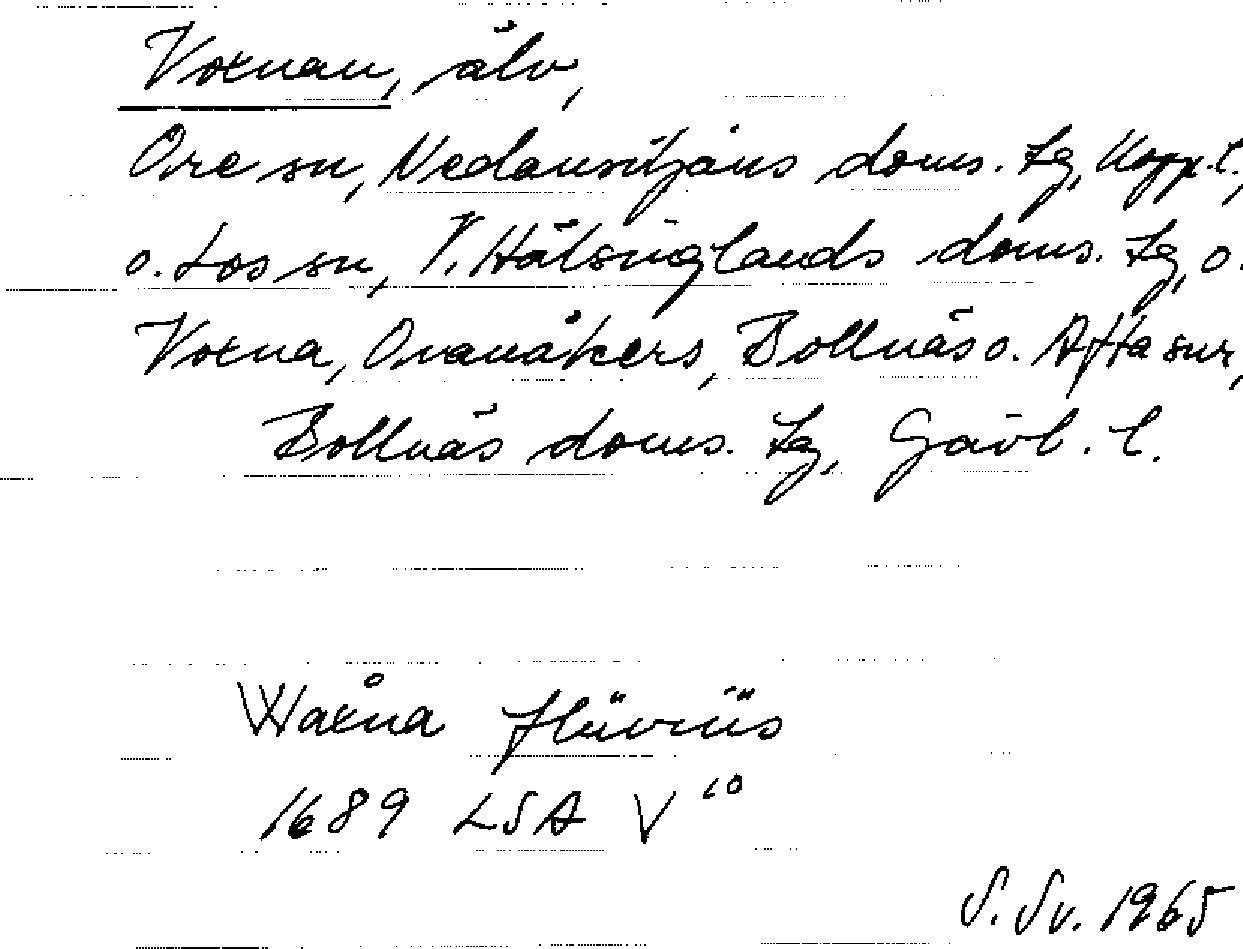 Voxnan, älv,
Ore sn, Nedansiljans doms. tg, Kopp. l.,
o. Los sn, V. Hälsinglands doms. tg, o.
Voxna, Ovanåkers, Bollnäs o. Alfta snr,
Bollnäs doms. tg, Gävl. l.
Wåxna flüviüs
1689 LSA V¹⁰
S. Sv. 1965